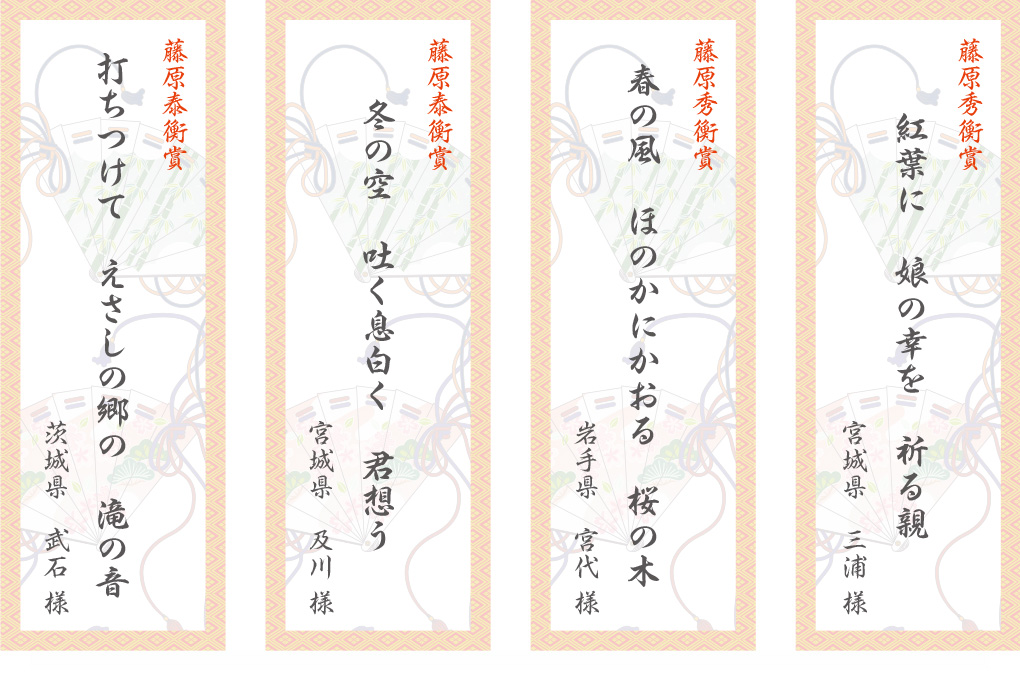 藤原秀衡賞
紅葉に　娘の幸を　祈る親
宮城県　三浦 様
藤原秀衡賞
春の風　ほのかにかおる　桜の木
岩手県　宮代 様
藤原泰衡賞
冬の空　吐く息白く　君想う
宮城県　及川 様
藤原泰衡賞
打ちつけて　えさしの郷の　滝の音
茨城県　武石 様